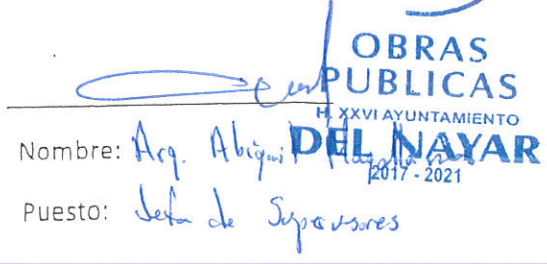 OBRAS
PUBLICAS
H. XXVI AYUNTAMIENTO
DEL NAYAR
2017 - 2021
Nombre: Arq. Abigail
Puesto: Jefa de Supervisores